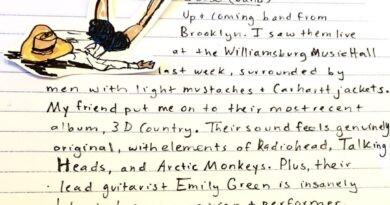 Up + coming band from
Brooklyn. I saw them live
at the Williamsburg Music Hall
last week, surrounded by
men with light mustaches + Carhartt jackets.
My friend put me on to their most recent
album, 3D Country. Their sound feels genuinely
original, with elements of Radiohead, Talking
Heads, and Arctic Monkeys. Plus, their
lead guitarist Emily Green is insanely